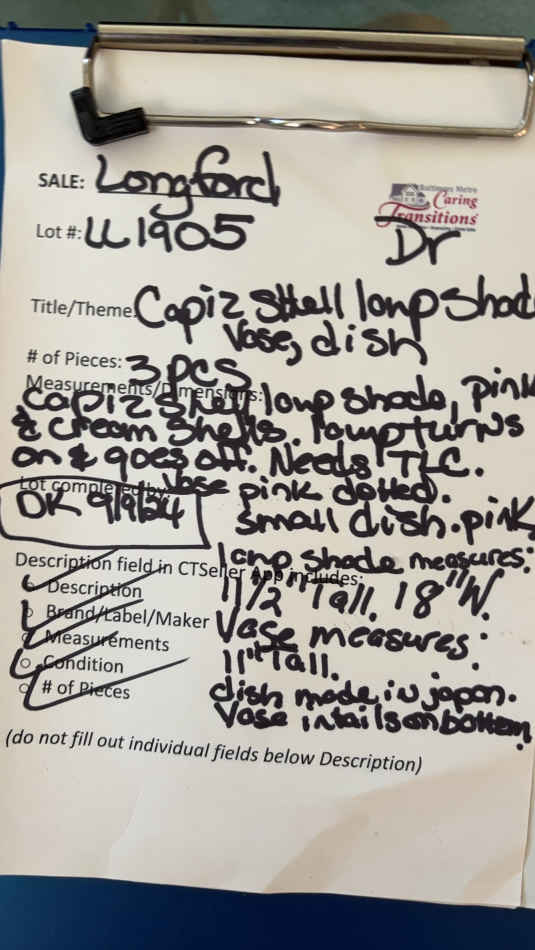 SALE: Longford
Baltimore Metro
Caring
Transitions
Lot #: LL1905
Dr
Title/Theme: Capiz Shell lampshad
Vase, dish
# of Pieces: 3 pcs
Measurements/Dimensions:
Capiz Shell lamp shade, pink
& cream shells. lamp turns
on & goes off. Needs TLC.
Lot completed by:
Vase pink dotted.
DK 9/9/24
small dish. pink
Description field in CTSeller App includes:
lamp shade measures:
Description
11 1/2" Tall. 18" W.
Brand/Label/Maker
Vase measures:
Measurements
11" Tall.
Condition
# of Pieces
dish made in japan.
Vase intails on bottom.
(do not fill out individual fields below Description)